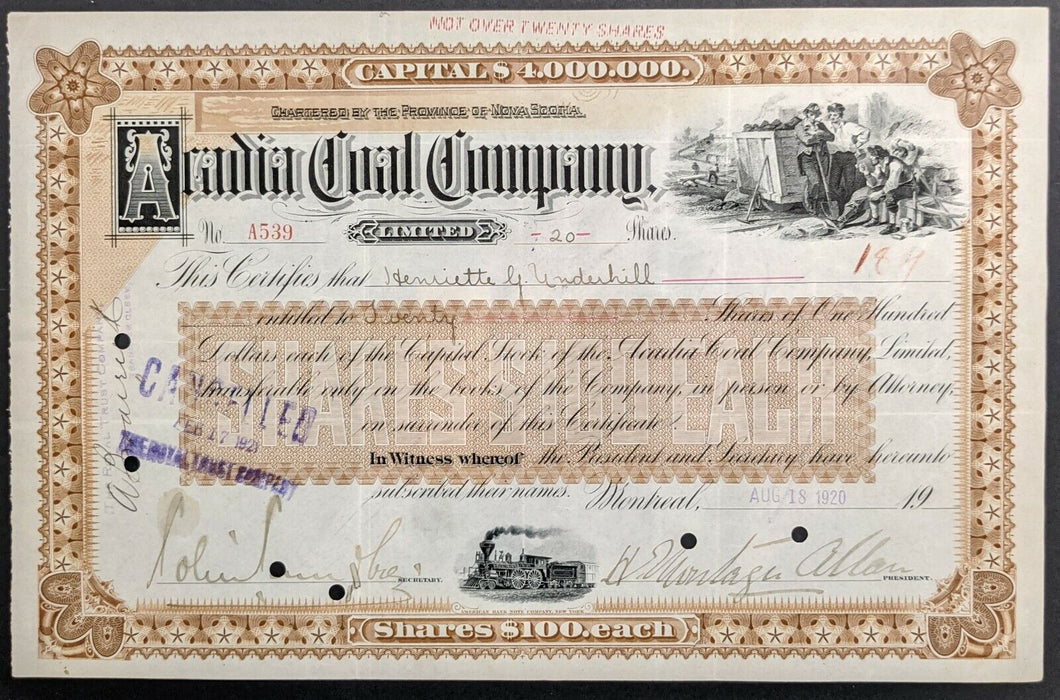 NOT OVER TWENTY SHARES
CAPITAL $4.000.000.
CHARTERED BY THE PROVINCE OF NOVA SCOTIA.
Acadia Coal Company,
No. A539 LIMITED -20- Shares.
This Certifies that Henriette G. Underhill
entitled to Twenty Shares of One Hundred
Dollars each of the Capital Stock of the Acadia Coal Company, Limited,
transferable only on the books of the Company, in person or by Attorney,
on surrender of this Certificate.
SHARES $100 EACH
In Witness whereof the President and Secretary have hereunto
subscribed their names. Montreal, AUG 18 1920 19
CANCELLED
FEB 17 1921
THE ROYAL TRUST COMPANY
ROYAL TRUST COMPANY
SECRETARY.
H Montagu Allan PRESIDENT.
AMERICAN BANK NOTE COMPANY, NEW YORK.
Shares $100.each